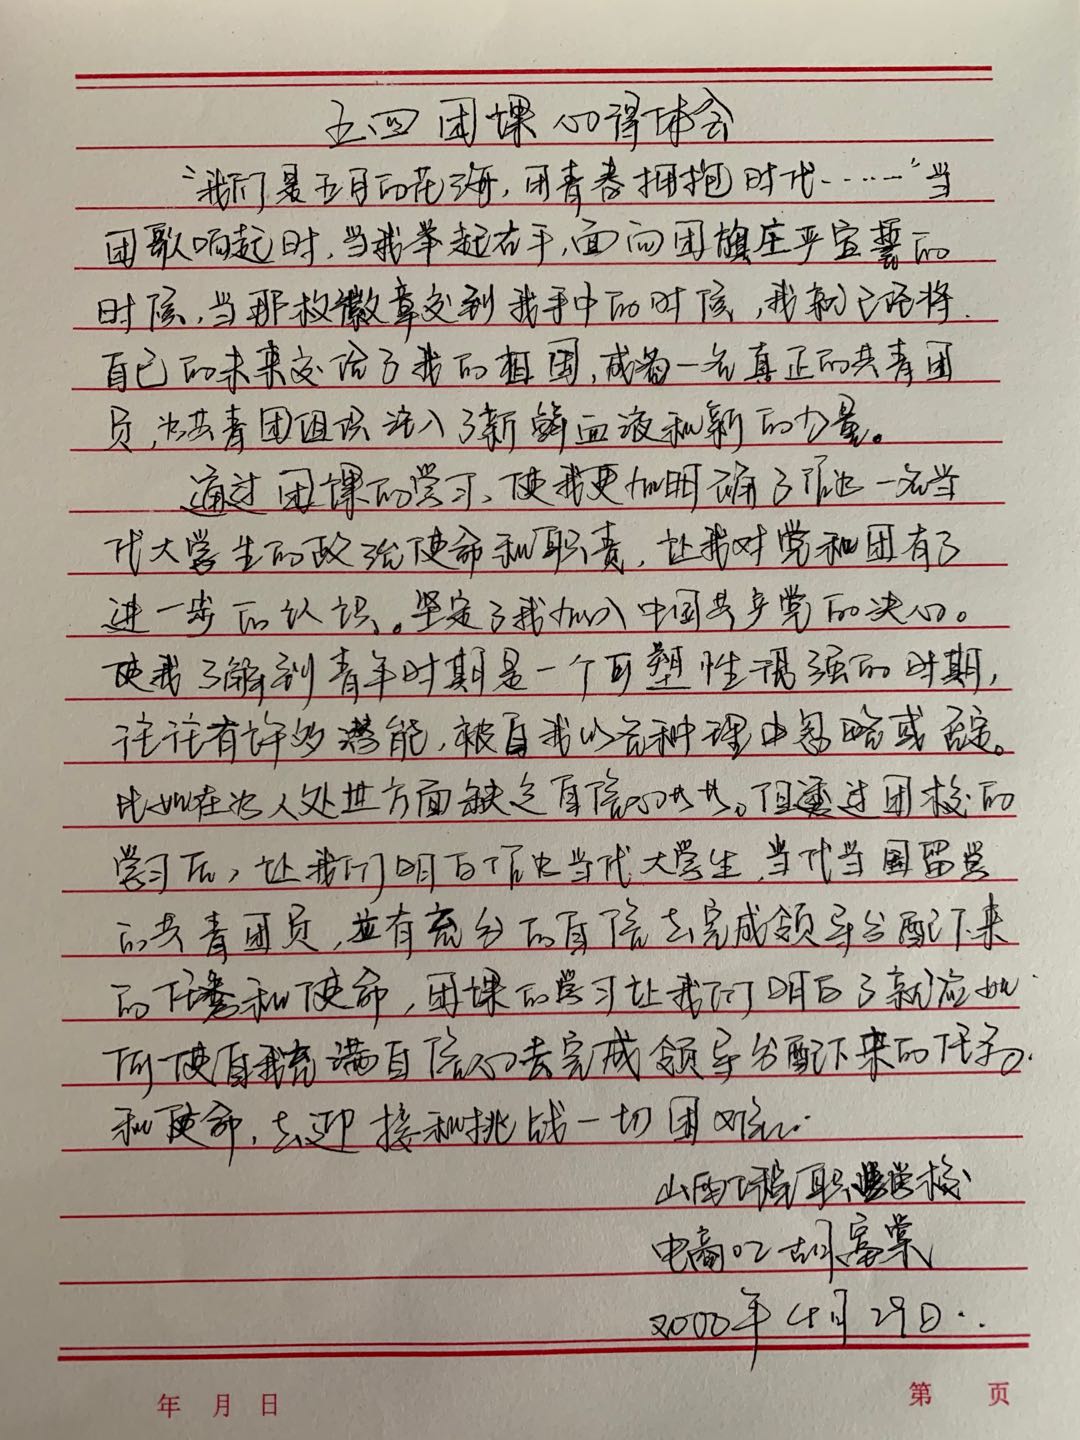 五四团课心得体会
“我们是五月的花海,用青春拥抱时代……”当
团歌响起时,当我举起右手,面向团旗庄严宣誓的
时候,当那枚徽章交到我手中的时候,我就已经将
自己的未来交给了我的祖国,成为一名真正的共青团
员,为共青团组织注入了新鲜血液和新的力量。
通过团课的学习、使我更加明确了作为一名当
代大学生的政治使命和职责,让我对党和团有了
进一步的认识、。坚定了我加入中国共产党的决心。
使我了解到青年时期是一个可塑性很强的时期,
往往有许多潜能,被自我以各种理由忽略或否定。
比如在为人处世方面缺乏自信心共共。但通过团校的
学习后,让我们明白作为当代大学生,当代
的共青团员,并有充分的自信去完成领导分配下来
的任务和使命,团课的学习让我们明白了就应如
何使自我充满自信心去完成领导分配下来的任务
和使命,去迎接和挑战一切困难..
山西 职业学校
电商02 胡富棠
年4月29日..
年 月 日
第 页